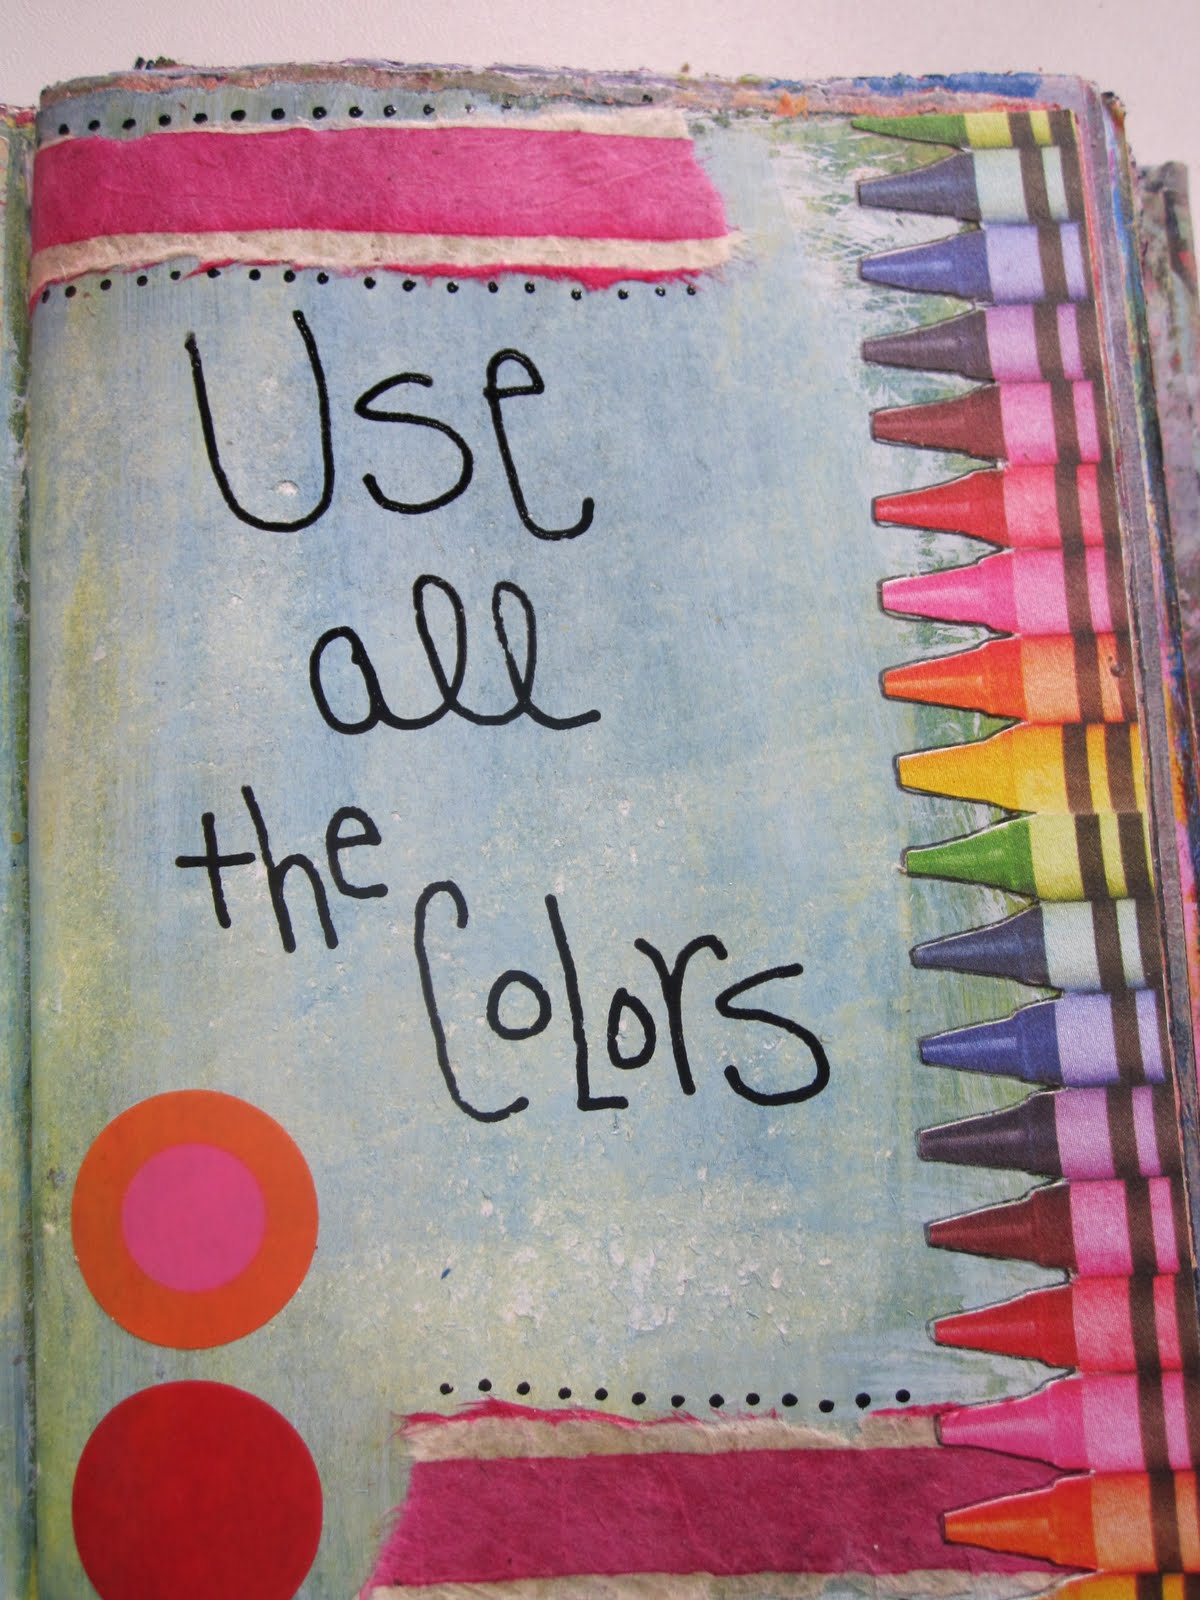 Use
all
the
Colors